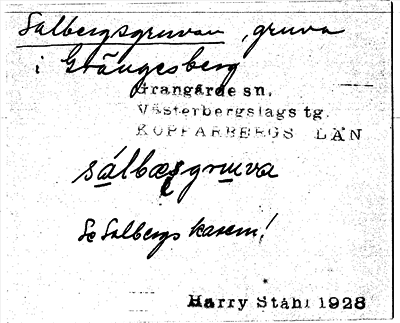 Salbergsgruvan, gruva
i Grängesberg
Grangärde sn.
Västerbergslags tg.
KOPPARBERGS LÄN
sálbæsgruva
Se Salbergs kasern!
Harry Ståhl 1928